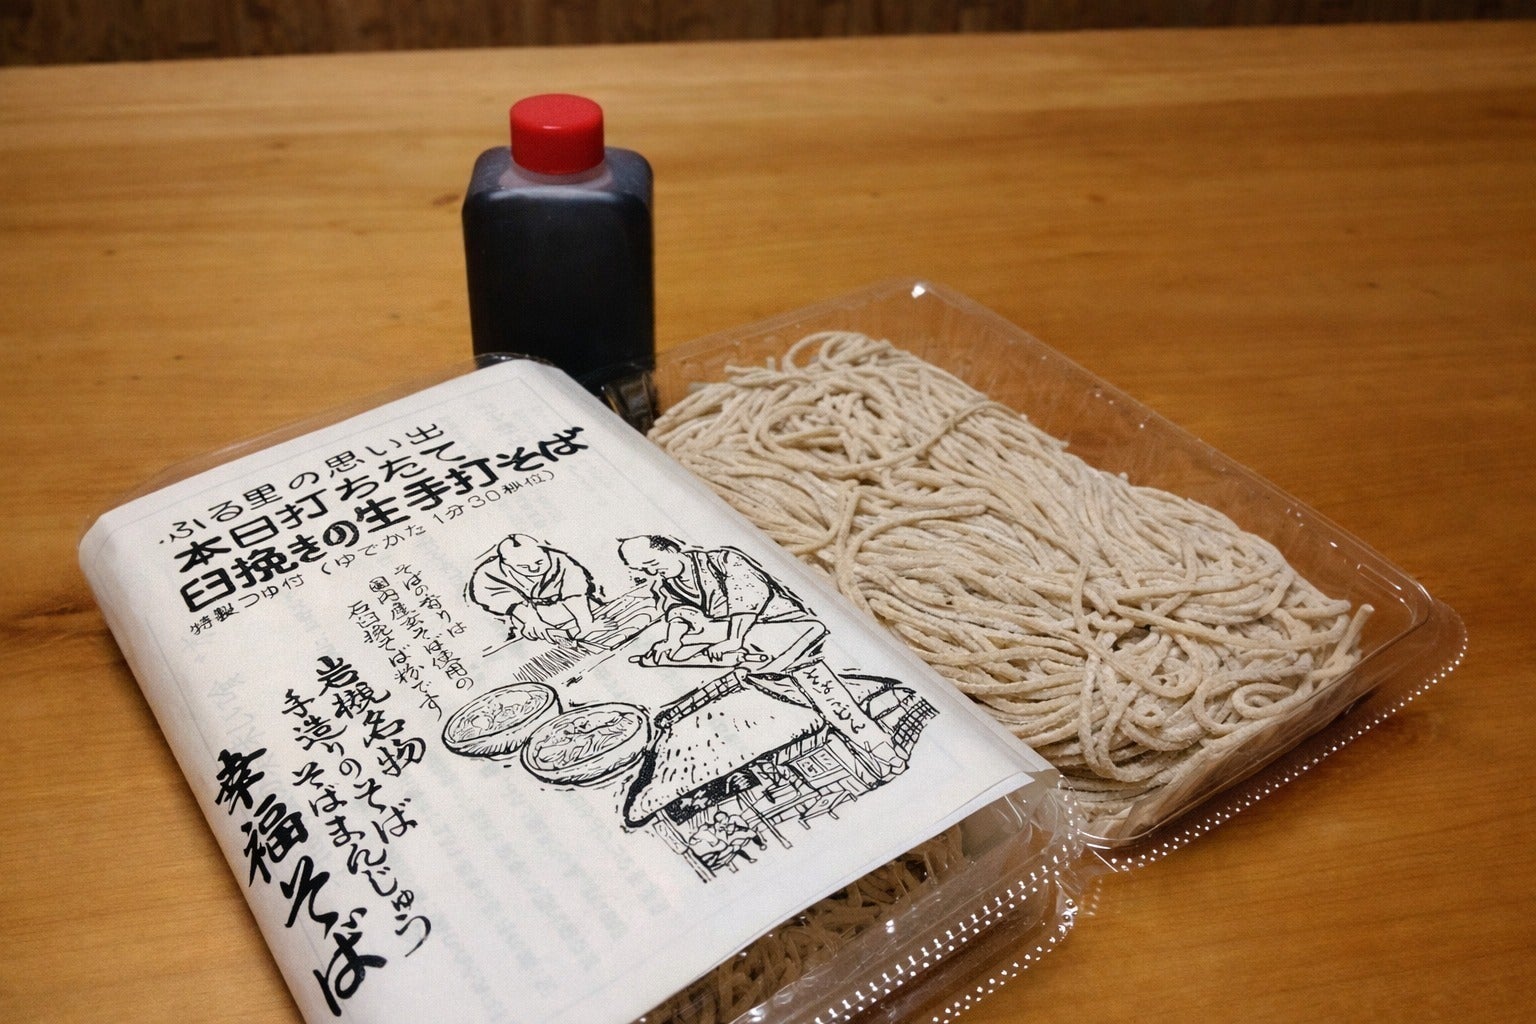 ふる里の思い出
本日打ちたて
臼挽きの生手打そば
特製つゆ付(ゆでかた 1分30秒位)
そばの香りは
国内産玄そば使用の
石臼挽そば粉です
岩槻名物
手造りのそば
そばまんじゅう
幸福そば